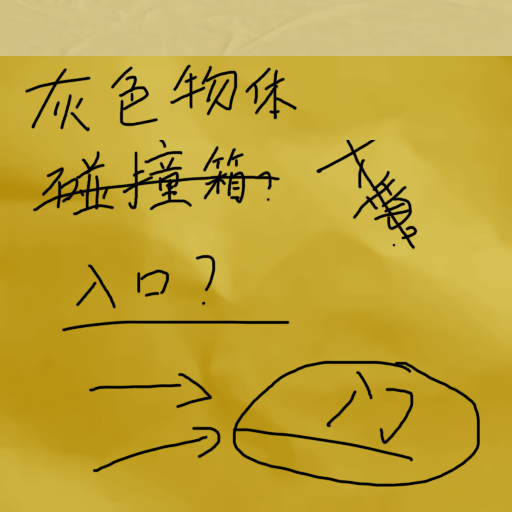 灰色物体
碰撞箱?
入口?
门